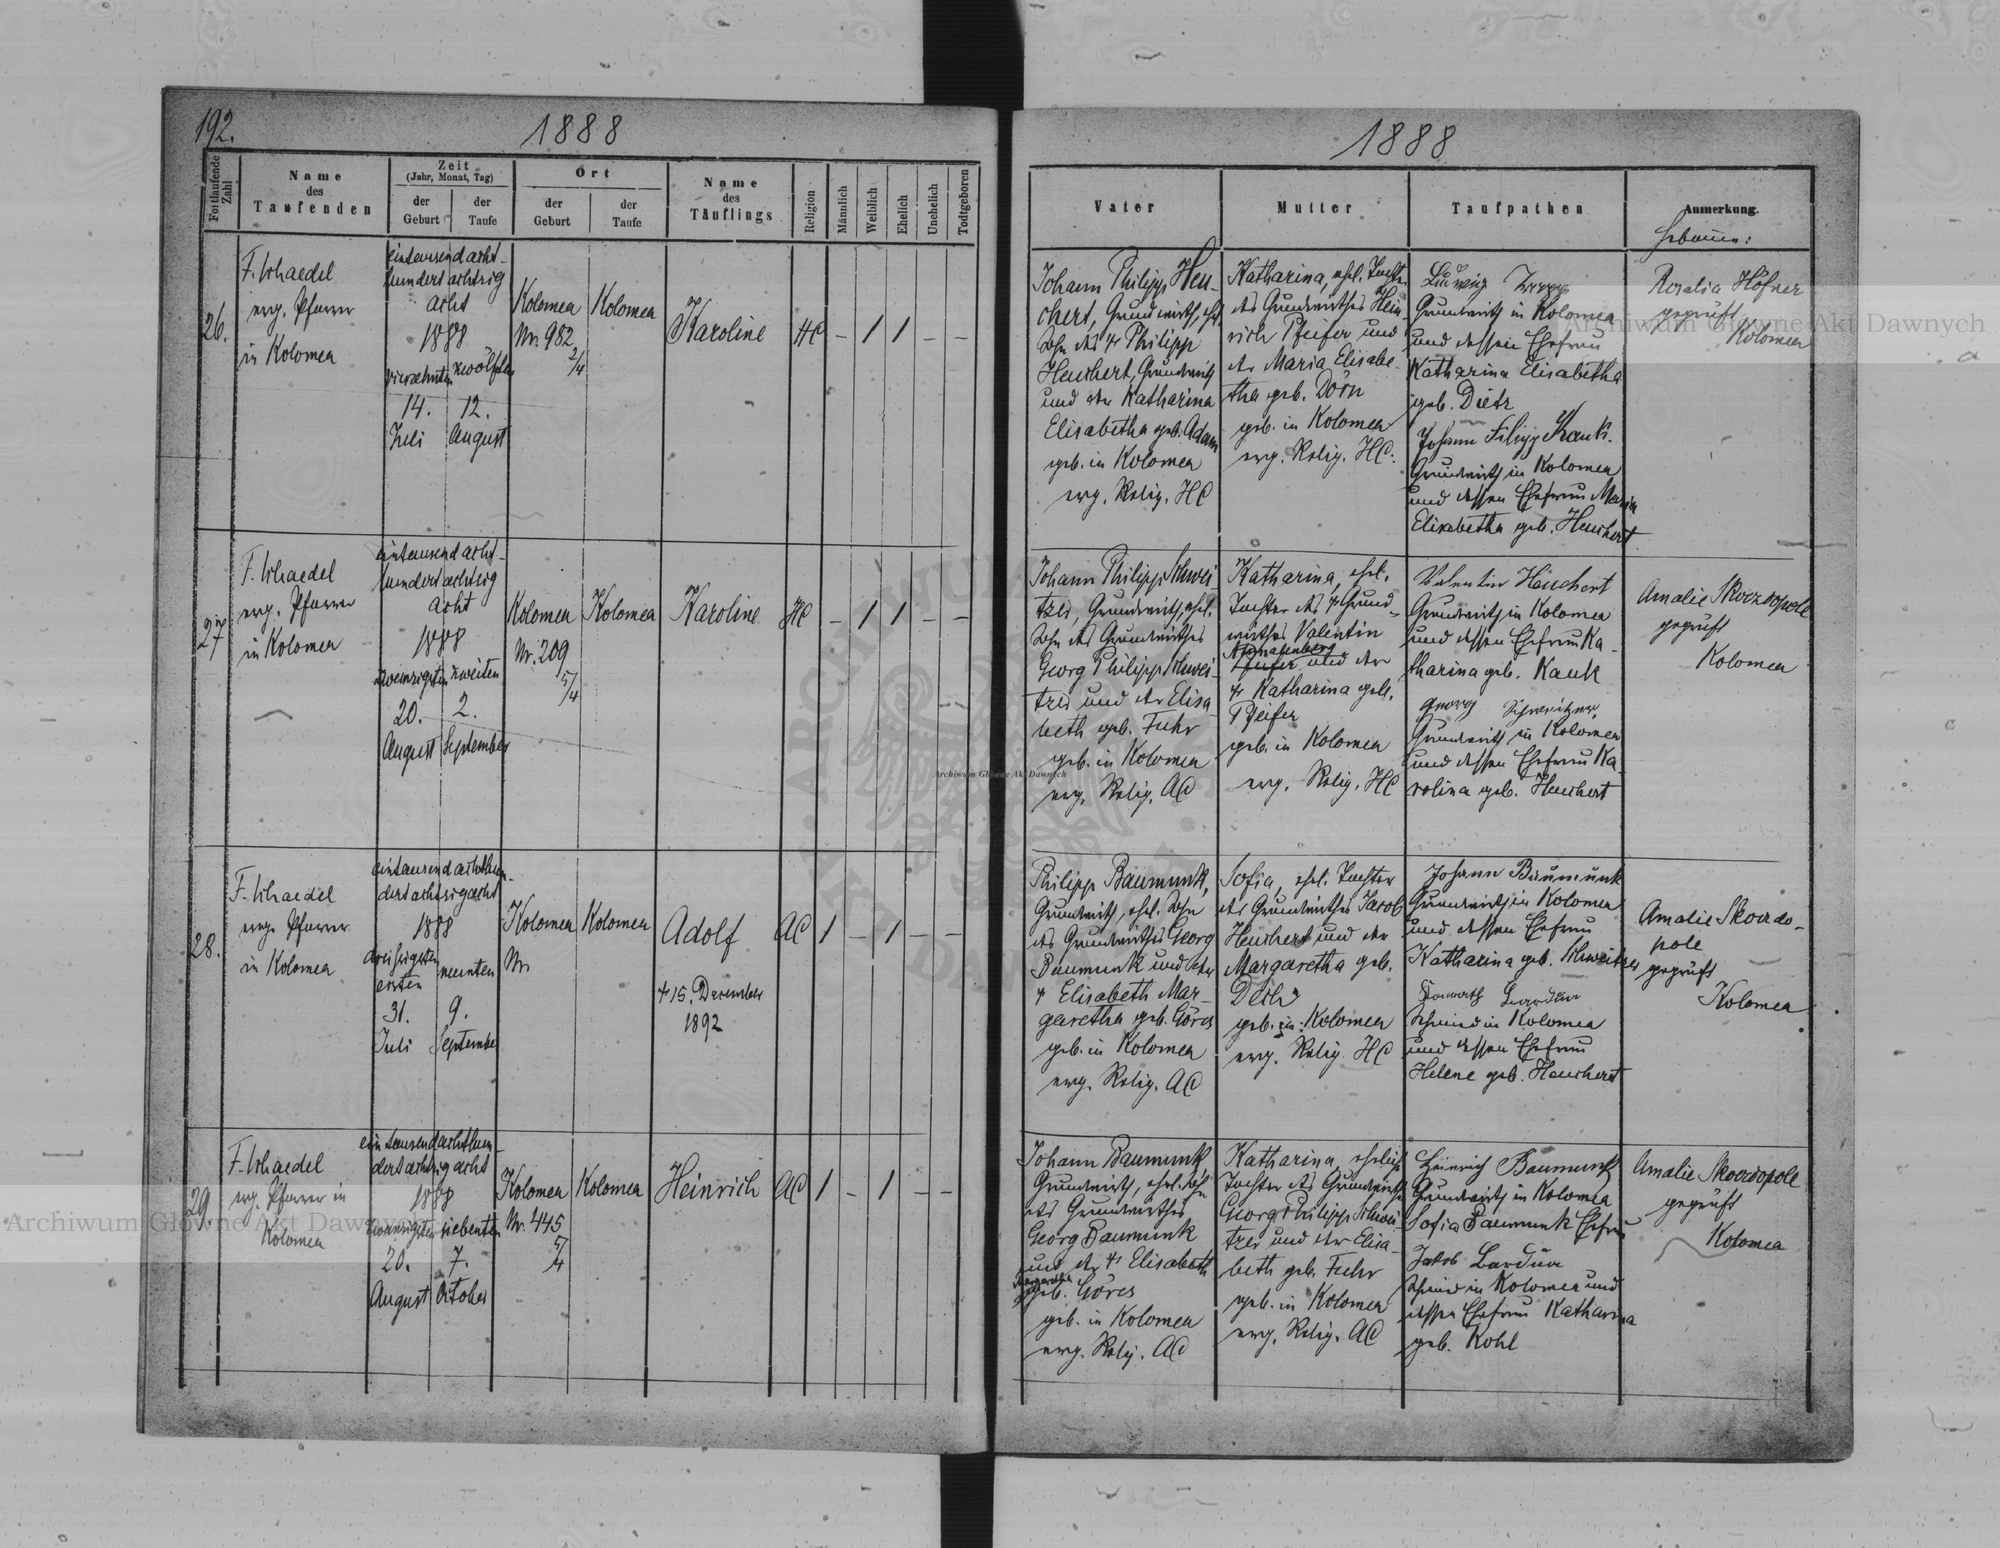 192.
1888
Fortlaufende Zahl
Name
des
Taufenden
Zeit
(Jahr, Monat, Tag)
der
Geburt
der
Taufe
Ort
der
Geburt
der
Taufe
Name
des
Täuflings
Religion
Männlich
Weiblich
Ehelich
Unehelich
Todtgeboren
26.
F. Schaedel
evg. Pfarrer
in Kolomea
eintausend acht-
hundert achtzig
acht
1888
vierzehnten
zwölften
14.
12.
Juli
August
Kolomea
Nr. 982
2/4
Kolomea
Karoline
HC
–
/
/
–
–
27
F. Schaedel
evg. Pfarrer
in Kolomea
eintausend acht-
hundert achtzig
acht
1888
zwanzigsten
zweiten
20.
2.
August
September
Kolomea
Nr. 209
5/4
Kolomea
Karoline
HC
–
/
/
–
–
28.
F. Schaedel
evg. Pfarrer
in Kolomea
eintausend achthun-
dert achtzig acht
1888
dreißigsten
ersten
neunten
31.
9.
Juli
September
Kolomea
Nr.
Kolomea
Adolf
† 15. Dezember
1892
AC
/
–
/
–
–
29.
F. Schaedel
evg. Pfarrer in
Kolomea
eintausend achthun-
dert achtzig acht
1888
zwanzigsten
siebenten
20.
7.
August
October
Kolomea
Nr. 445
5/4
Kolomea
Heinrich
AC
/
–
/
–
–
1888
Vater
Mutter
Taufpathen
Anmerkung.
Hebamme:
Johann Philipp Heu-
chert, Grundwirth, ehl.
Sohn des † Philipp
Heuchert, Grundwirth
und der Katharina
Elisabetha geb. Adam
geb. in Kolomea
evg. Relig. HC
Katharina, ehel. Tochter
des Grundwirthes Hein-
rich Pfeifer und
der Maria Elisabe-
tha geb. Dörn
geb. in Kolomea
evg. Relig. HC.
Ludwig
Grundwirth in Kolomea
und dessen Ehefrau
Katharina Elisabetha
geb. Dietz
Johann Filipp Kauk.
Grundwirth in Kolomea
und dessen Ehefrau Maria
Elisabetha geb. Heuchert
Rosalia Höfner
geprüft
Kolomea
Johann Philipp Schwei-
tzer, Grundwirth, ehel.
Sohn des Grundwirthes
Georg Philipp Schwei-
tzer und der Elisa-
beth geb. Fuhr
geb. in Kolomea
evg. Relig. AC
Katharina, ehel.
Tochter des † Grund-
wirthes Valentin
Pfeifer und der
† Katharina geb.
Pfeifer
geb. in Kolomea
evg. Relig. HC
Valentin Heuchert
Grundwirth in Kolomea
und dessen Ehefrau Ka-
tharina geb. Kauk
Georg Schweitzer,
Grundwirth in Kolomea
und dessen Ehefrau Ka-
rolina geb. Heuchert
Amalie Skorzdopole
geprüft
Kolomea
Philipp Baumunk,
Grundwirth, ehel. Sohn
des Grundwirthes Georg
Baumunk und der
† Elisabeth Mar-
garetha geb. Göres
geb. in Kolomea
evg. Relig. AC
Sofia, ehel. Tochter
des Grundwirthes Jacob
Heuchert und der
Margaretha geb.
geb. in Kolomea
evg. Relig. HC
Johann Baumunk
Grundwirth in Kolomea
und dessen Ehefrau
Katharina geb. Schweitzer
Konrath
Schmied in Kolomea
und dessen Ehefrau
Helene geb. Heuchert
Amalie Skorzdo-
pole
geprüft
Kolomea
Johann Baumunk
Grundwirth, ehel. Sohn
des Grundwirthes
Georg Baumunk
und der † Elisabeth
Margaretha
geb. Göres
geb. in Kolomea
evg. Relig. AC
Katharina, eheliche
Tochter des Grundwirths
Georg Philipp Schwei-
tzer und der Elisa-
beth geb. Fuhr
geb. in Kolomea
evg. Relig. AC
Heinrich Baumunk
Grundwirth in Kolomea
Sofia Baumunk Ehefrau
Jakob Lardua
Schmied in Kolomea und
dessen Ehefrau Katharina
geb. Kohl
Amalie Skorzdopole
geprüft
Kolomea
Archiwum Główne Akt Dawnych
Archiwum Główne Akt Dawnych
Archiwum Główne Akt Dawnych